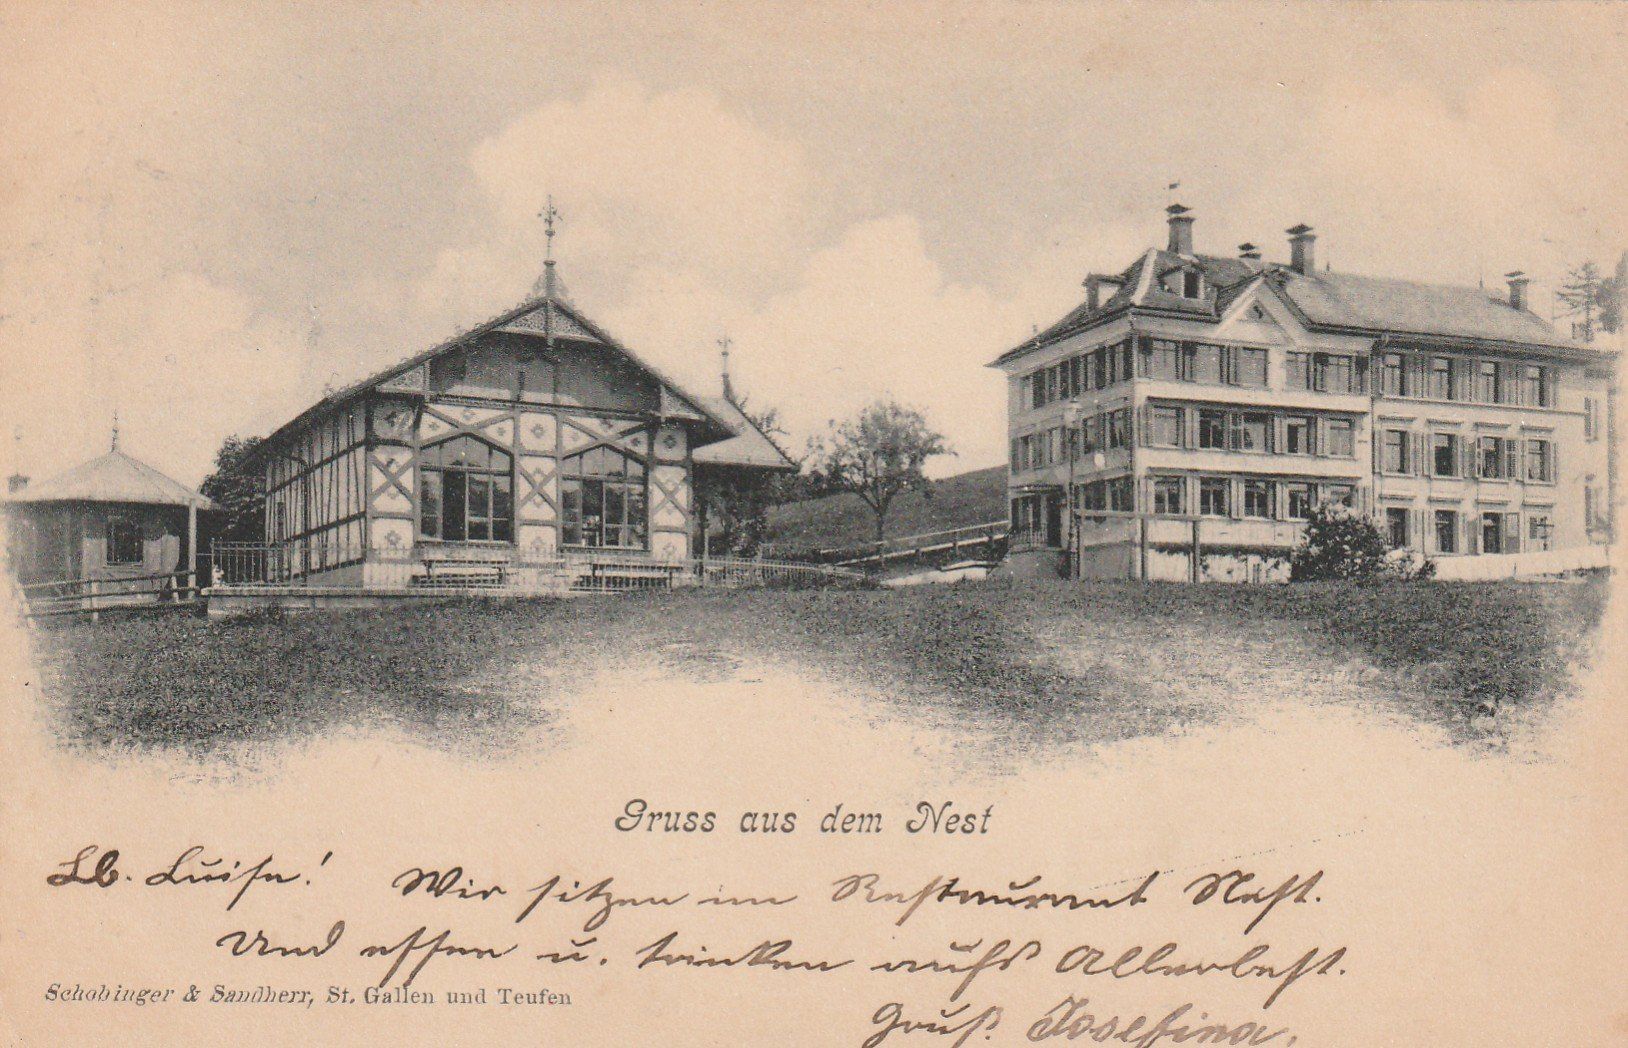 Gruss aus dem Nest
Lb. Luise! Wir sitzen im Restaurant Nest.
Und essen u. trinken aufs Allerbest.
Schobinger & Sandherr, St. Gallen und Teufen
Gruß. Josefina.